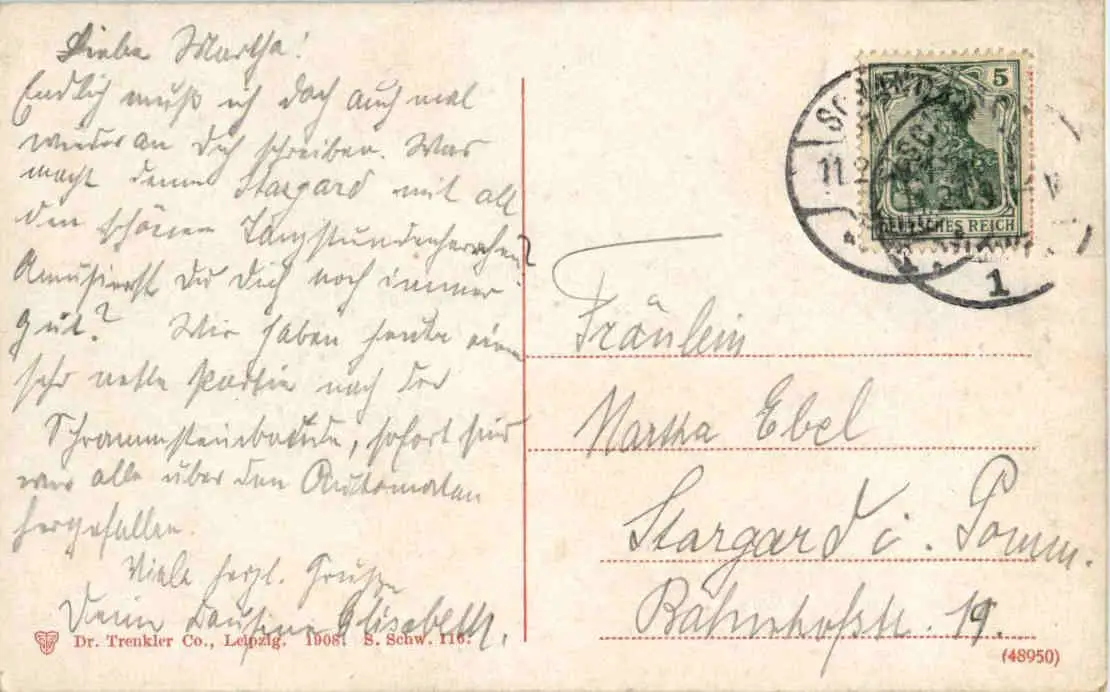 Liebe Martha!
Endlich muß ich doch auch mal
wieder an Dich schreiben. Was
macht denn Stargard mit all
den schönen Tanzstundenherrchen?
Amüsierst Du Dich noch immer
gut? Wir haben heute eine
sehr nette Partie nach der
Schrammsteinbaude, sofort sind
wir alle über den Automaten
hergefallen.
Viele herzl. Grüße
Deine Elisabeth.
Dr. Trenkler Co., Leipzig. 1908. S. Schw. 116.
5
DEUTSCHES REICH
11.
1
Fräulein
Martha Ebel
Stargard i. Pomm.
Bahnhofstr. 19.
(48950)